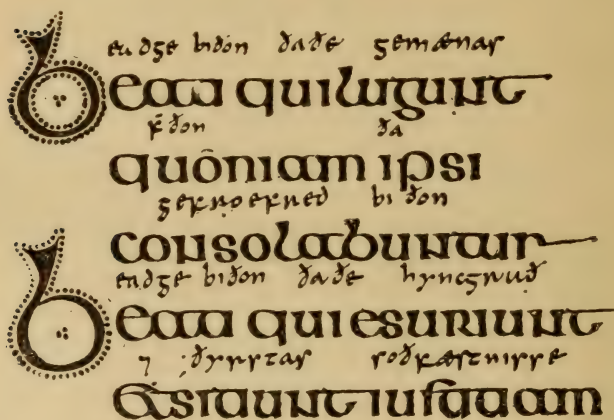 eadge biðon ðaðe gemænas
beati qui lugunt
f̄ðon ða
quoniam ipsi
gefroefred bi ðon
consolabuntur
eadge biðon ðaðe hyncgrað
beati qui esuriunt
⁊ ðyrstas soðfæstnisse
et sitiunt iustitiam